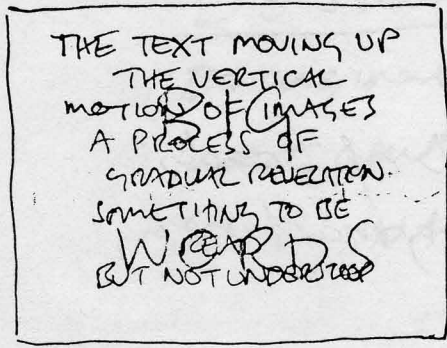 THE TEXT MOVING UP
THE VERTICAL
MOTION OF IMAGES
BIG
A PROCESS OF
GRADUAL REVELATION.
SOMETHING TO BE
READ
WORDS
BUT NOT UNDERSTOOD